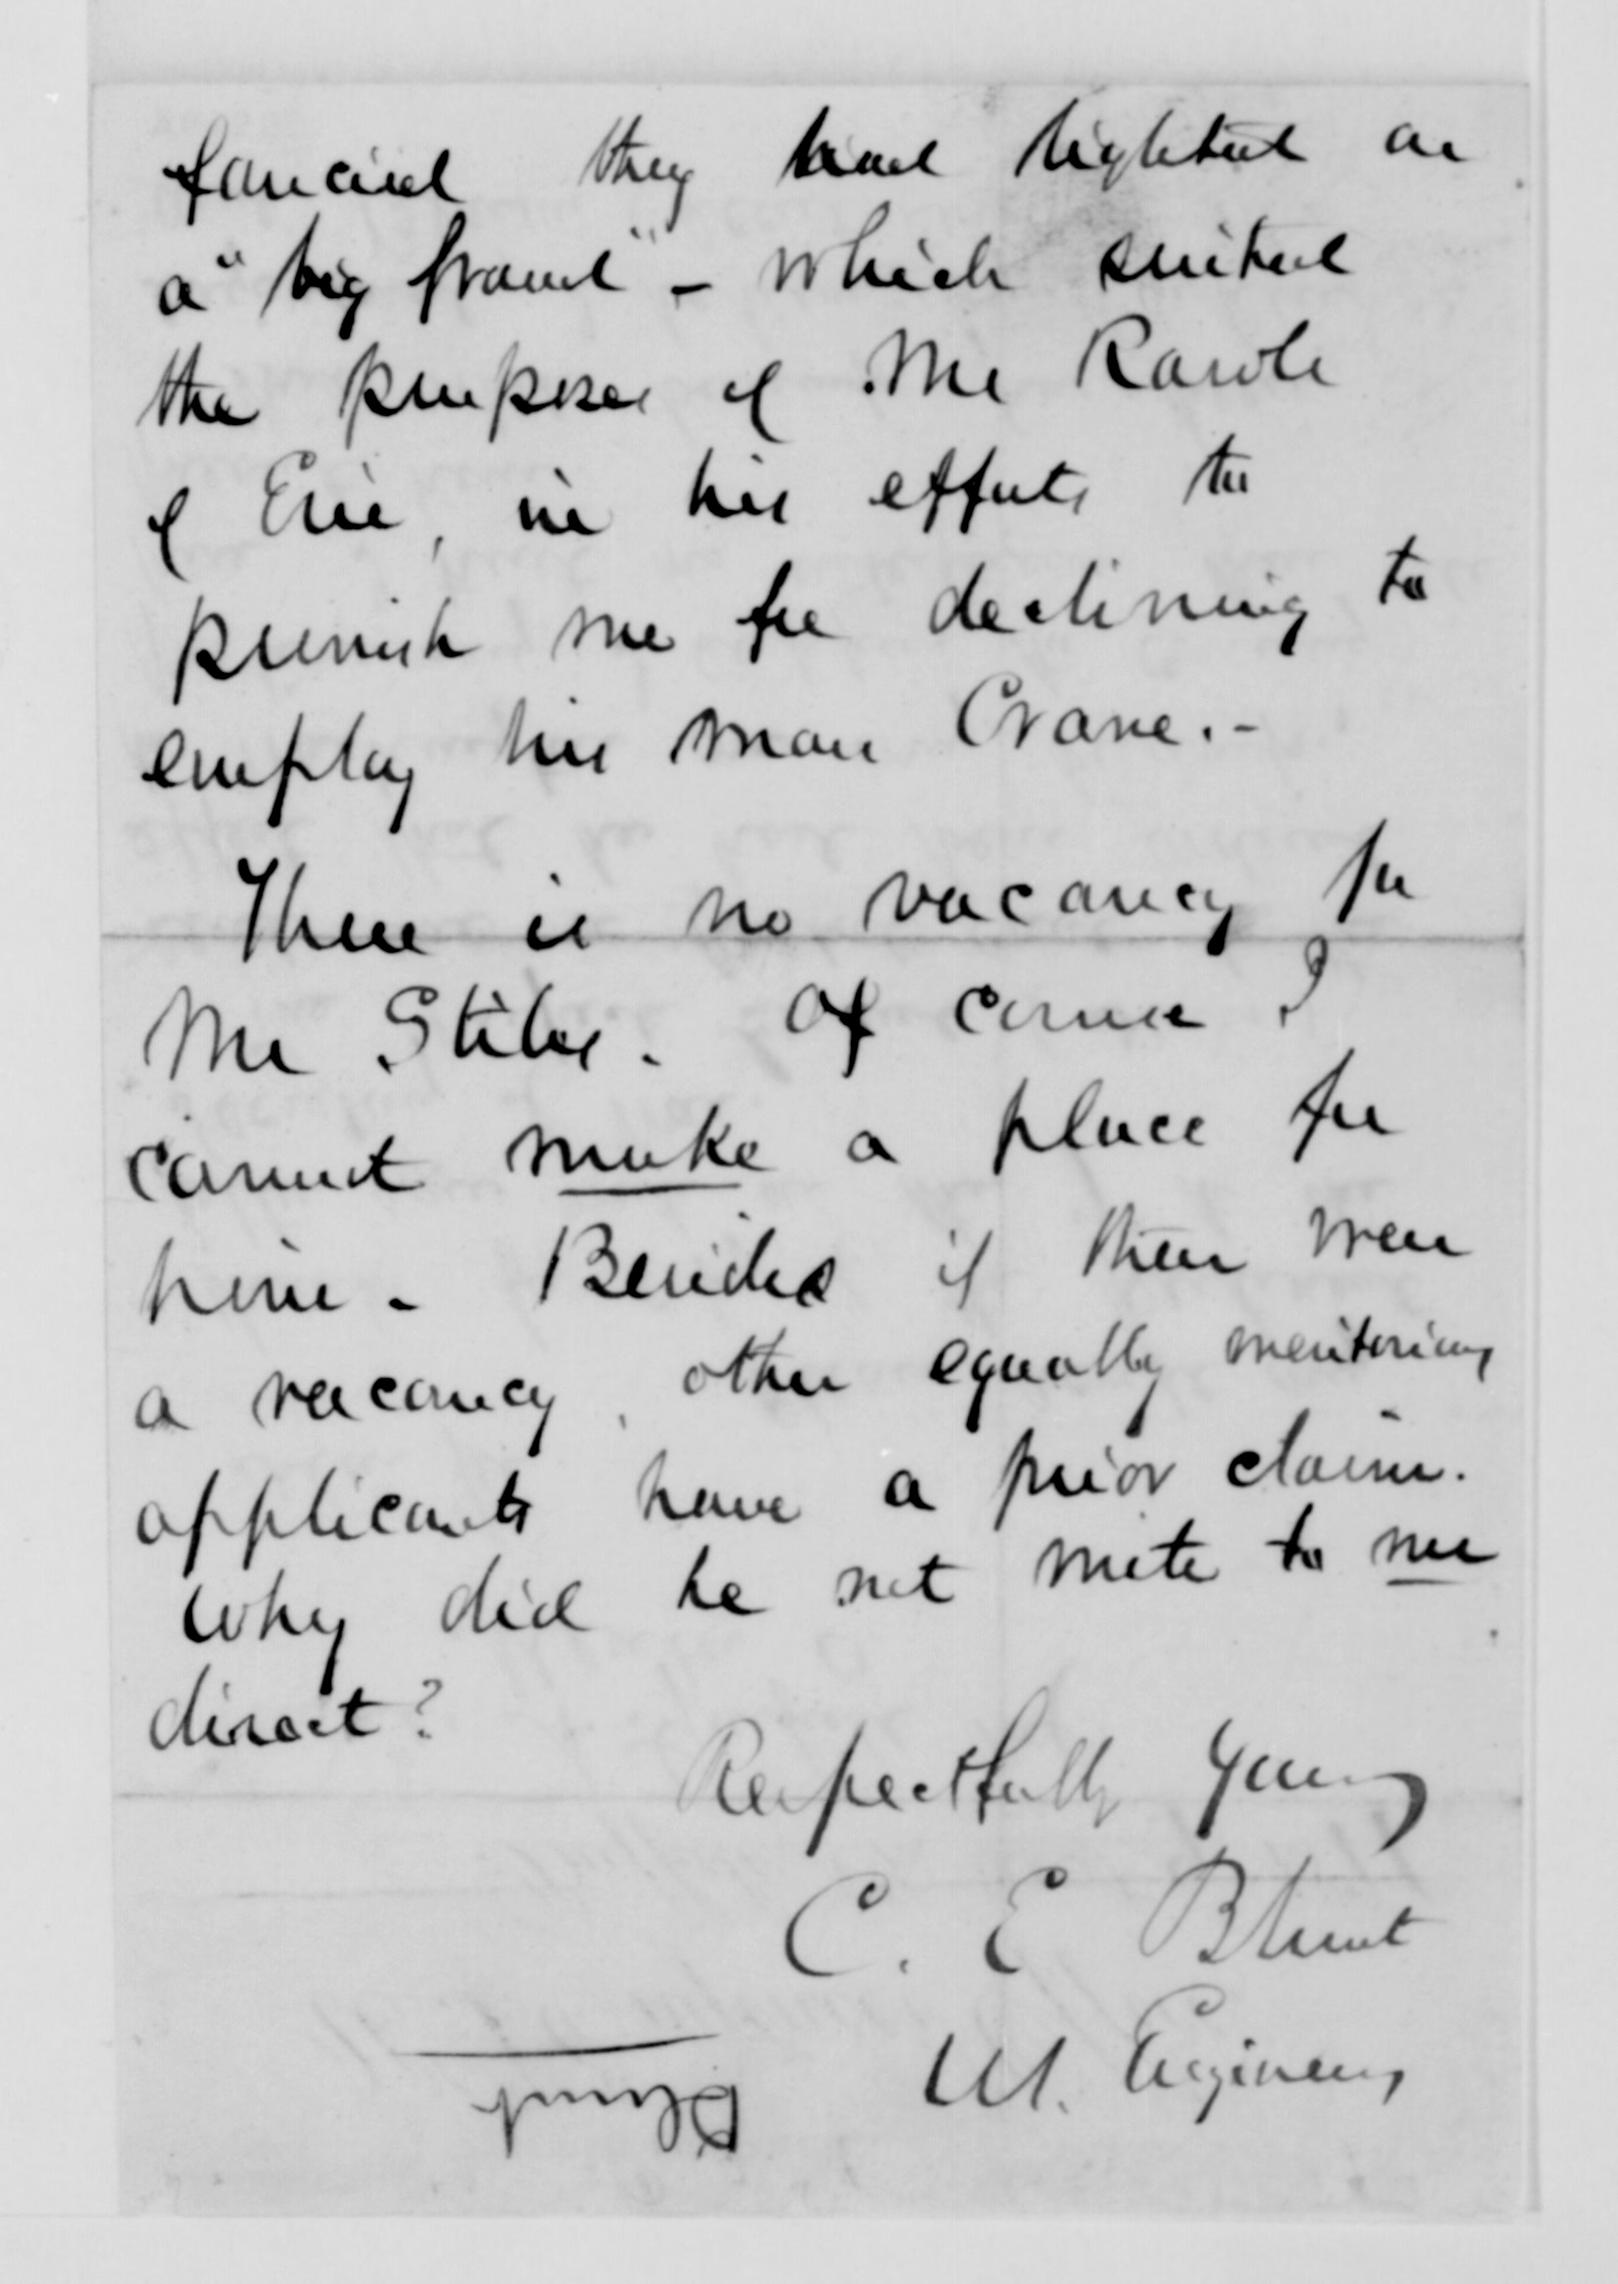 fancied they had lighted on
a "big fraud" - which suited
the purposes of Mr Rawle
of Erie, in his efforts to
punish me for declining to
employ his man Crane.-
There is no vacancy for
Mr Stiles. Of course I
cannot make a place for
him - Besides if there were
a vacancy, other equally meritorious
applicants have a prior claim.
Why did he not write to me
direct?
Respectfully Yours
C. E Blunt
Lt. Engineers
Blunt